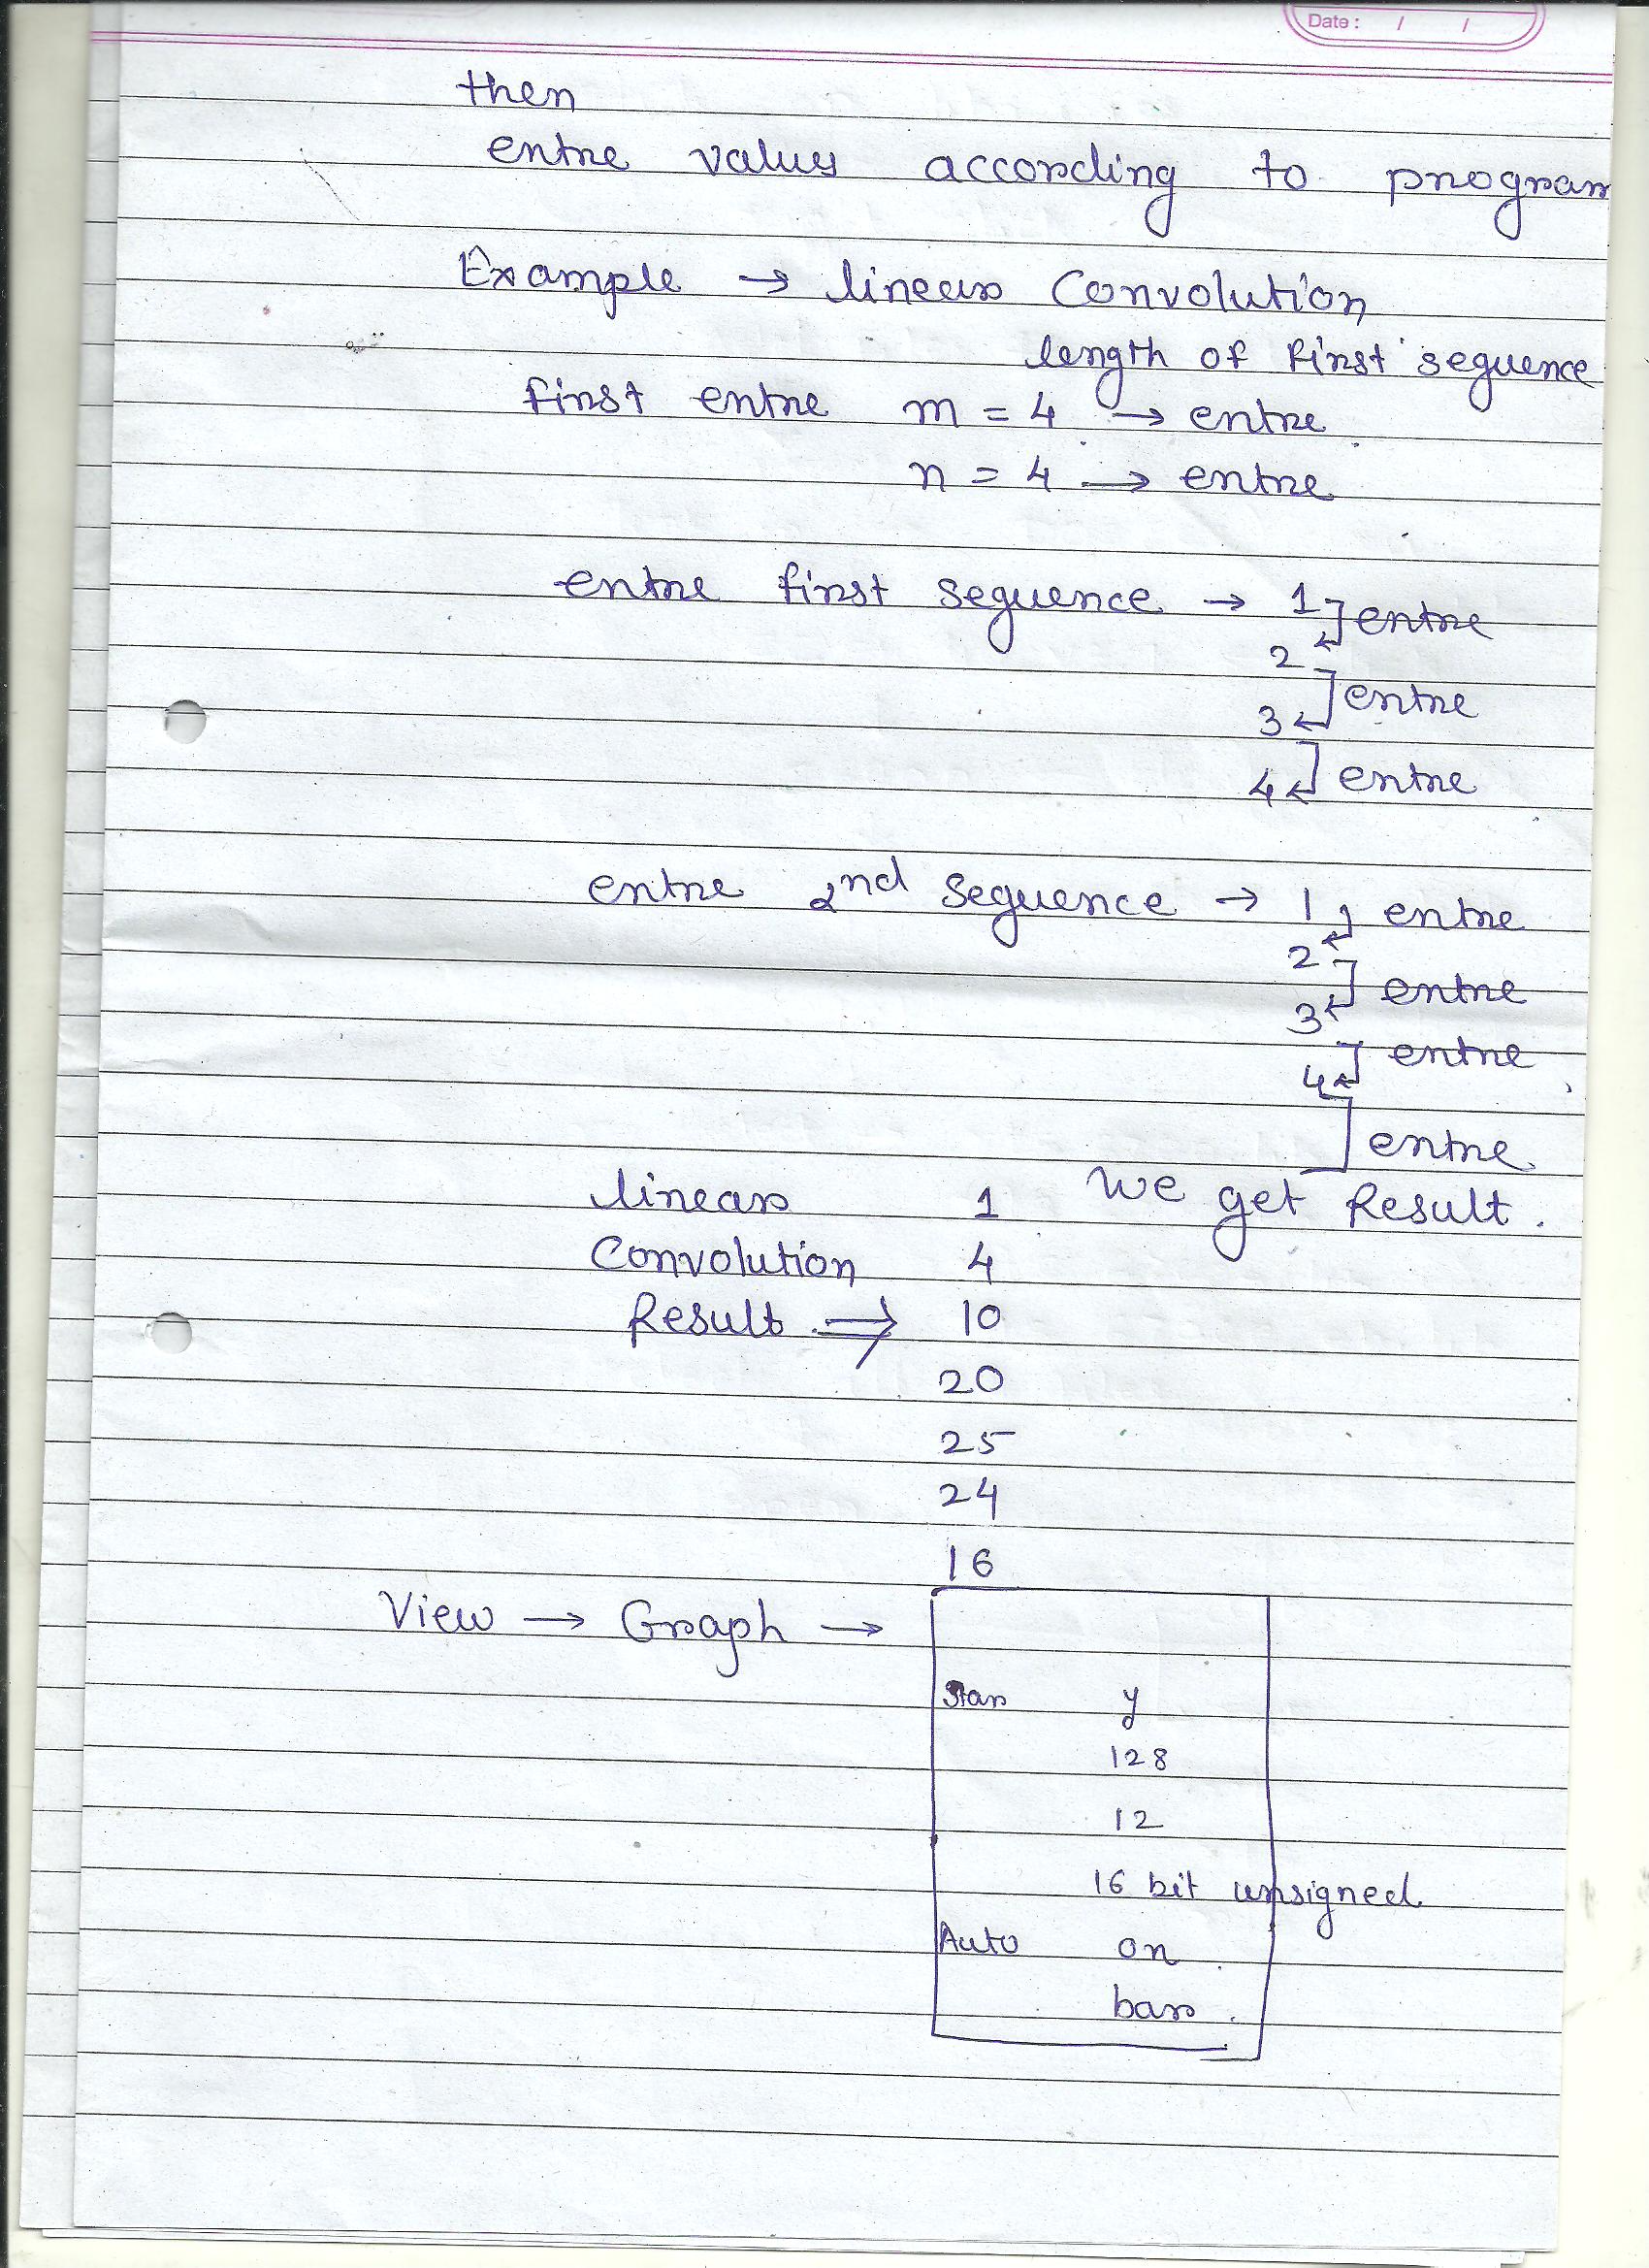 Date : / /
then
entre values according to program
Example → linear Convolution
length of first sequence
first entre m = 4 → entre
n = 4 → entre
entre first sequence → 1 entre
2
3 entre
4 entre
entre 2nd sequence → 1 entre
2
3 entre
4 entre
entre
linear 1 We get Result.
Convolution 4
Result ⇒ 10
20
25
24
16
View → Graph →
Star y
128
12
16 bit unsigned
Auto on
bar